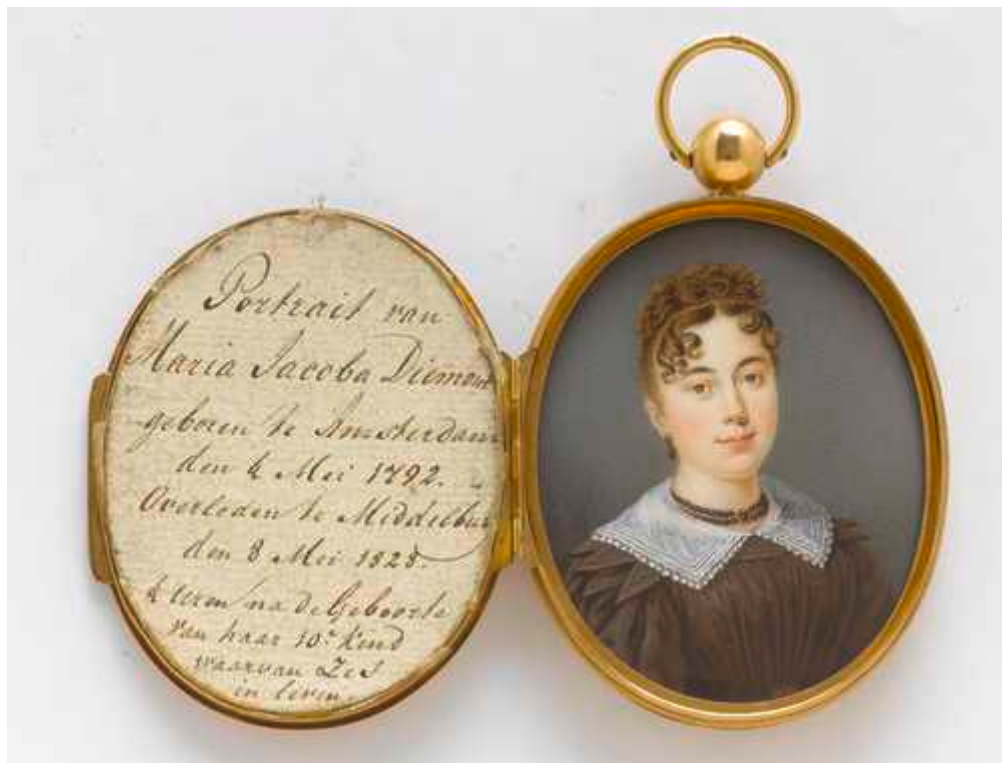 Portrait van
Maria Jacoba Diemont
geboren te Amsterdam
den 4 Mei 1792.
Overleden te Middelbur
den 8 Mei 1828.
4 uren na de Geboorte
van haar 10e Kind
waarvan Zes
in leven